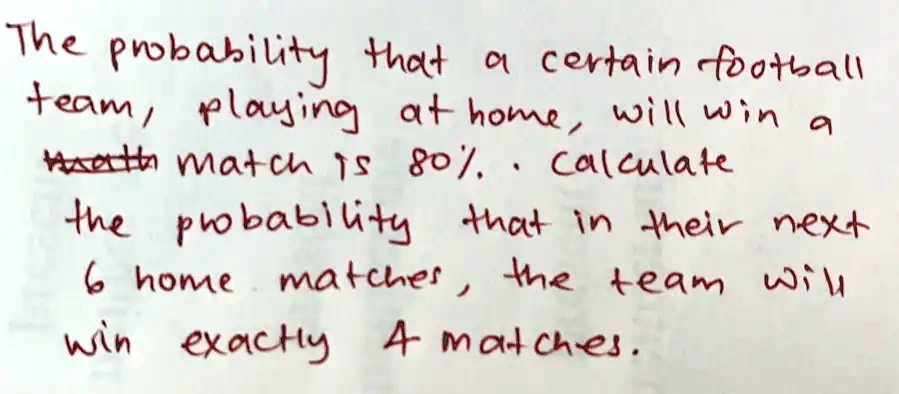 The probability that a certain football
team, playing at home, will win a
match is 80%. . Calculate
the probability that in their next
6 home matches, the team will
win exactly 4 matches.